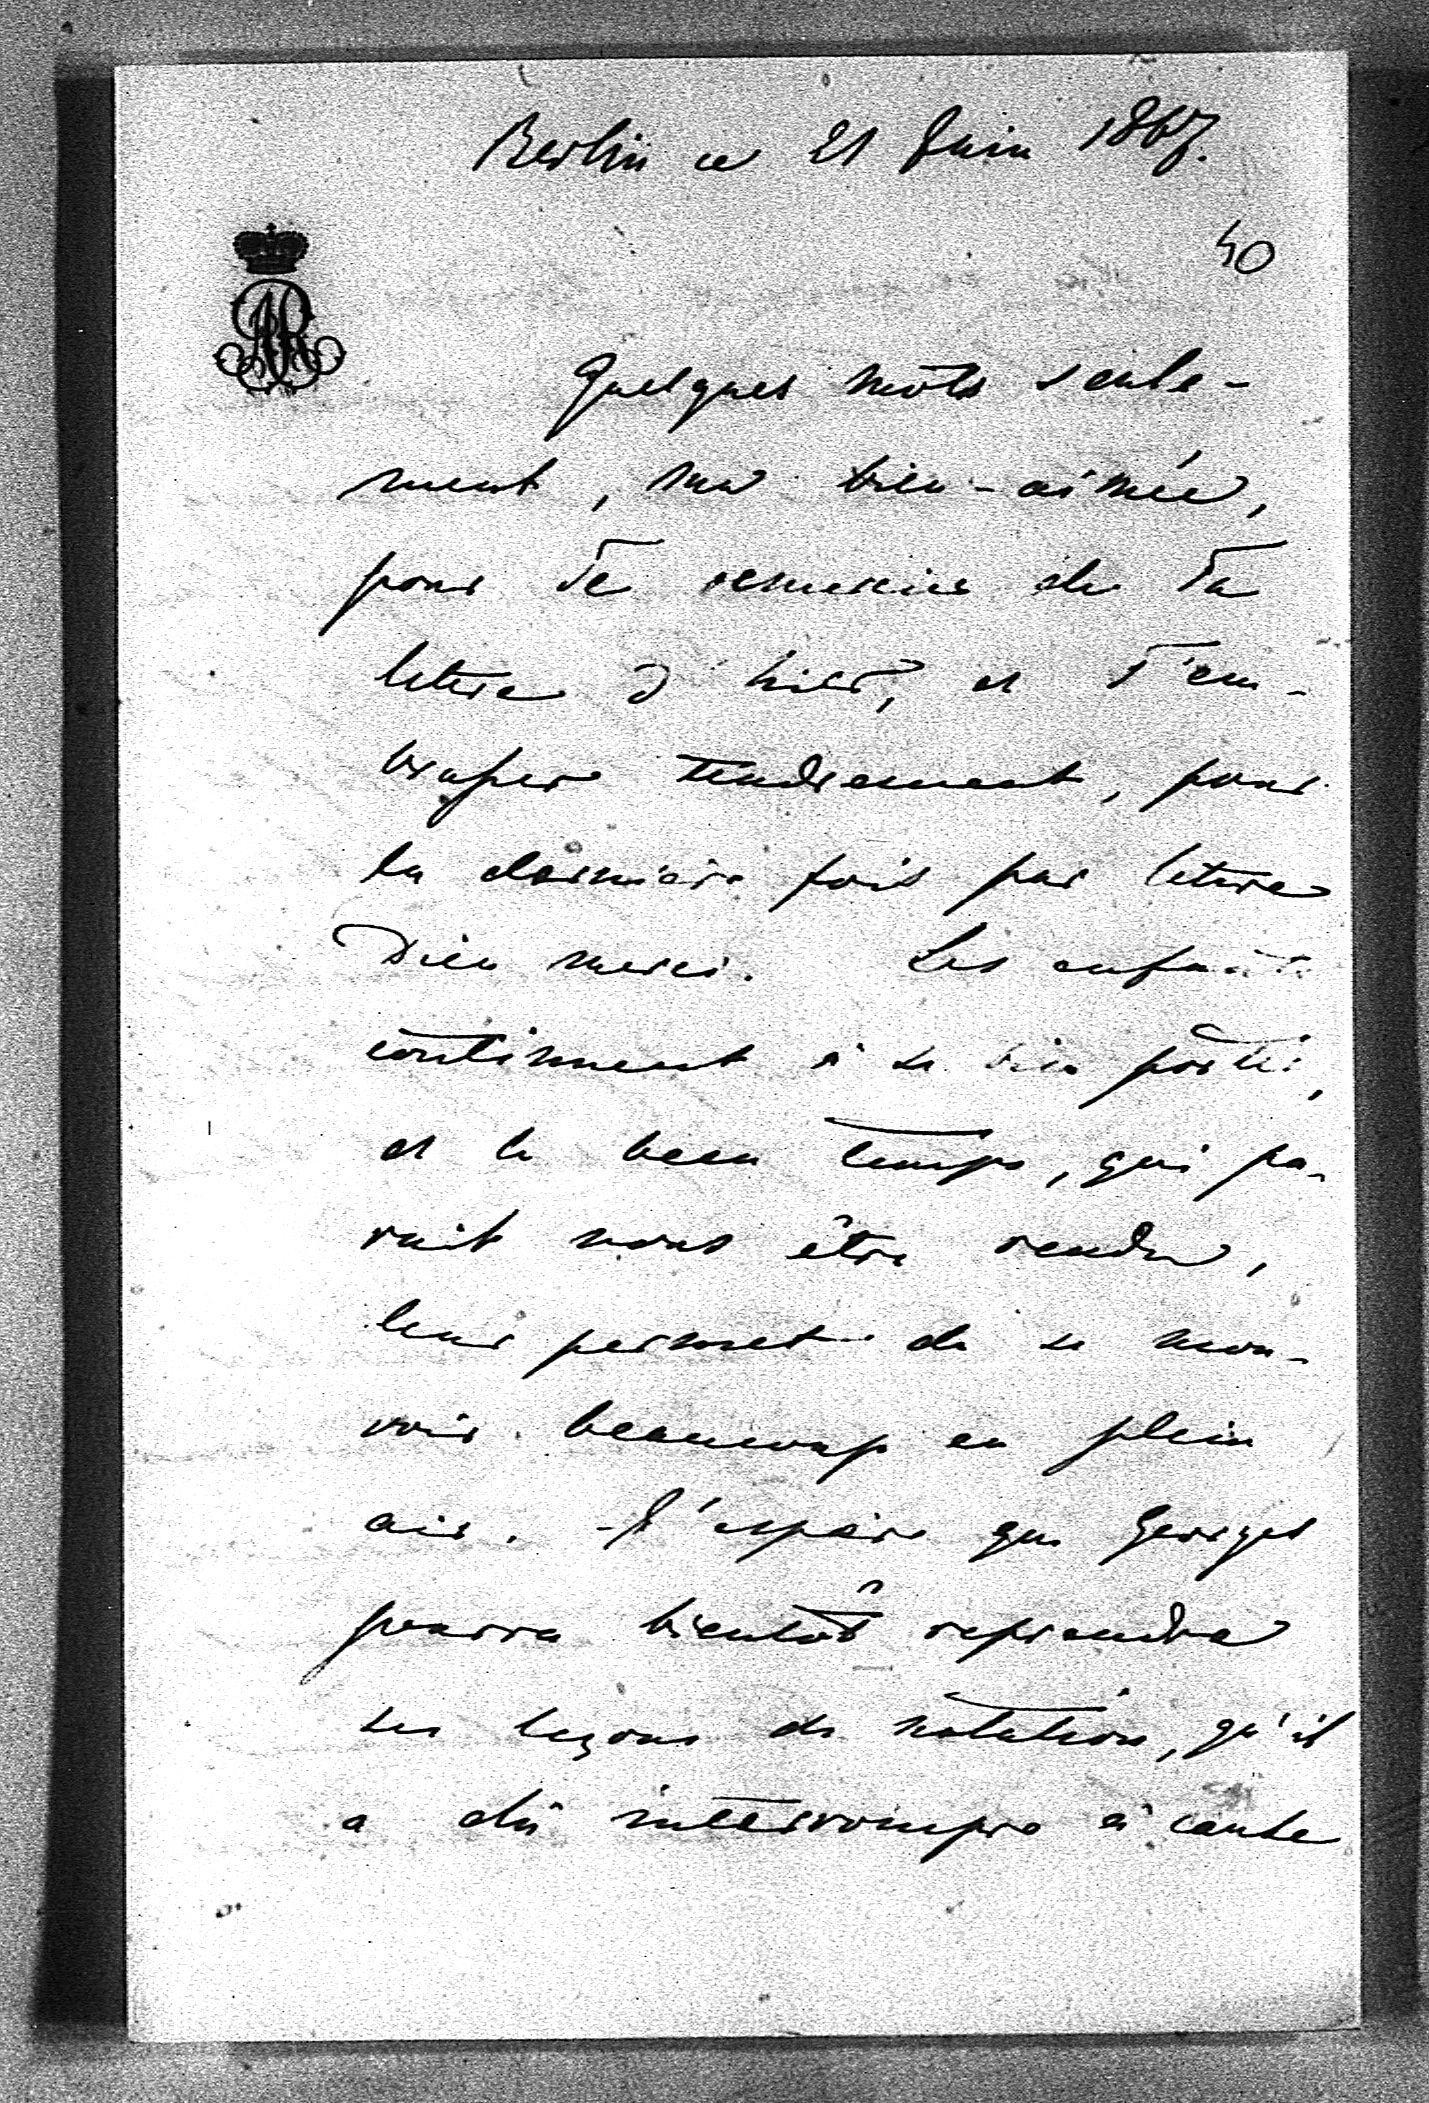 Berlin ce 21 Juin 1867.
40
AR
Quelques mots seule-
ment, ma bien-aimée,
pour Te remercier de Ta
lettre d'hier, et T'em-
brasser tendrement, pour
la dernière fois par lettre
Dieu merci. Les enfants
continuent à se bien porter,
et le beau temps, qui pa-
rait nous être rendu,
leur permet de se mou-
voir beaucoup en plein
air. - J'espère que Georges
pourra bientôt reprendre
ses leçons de natation, qu'il
a dû interrompre à cause